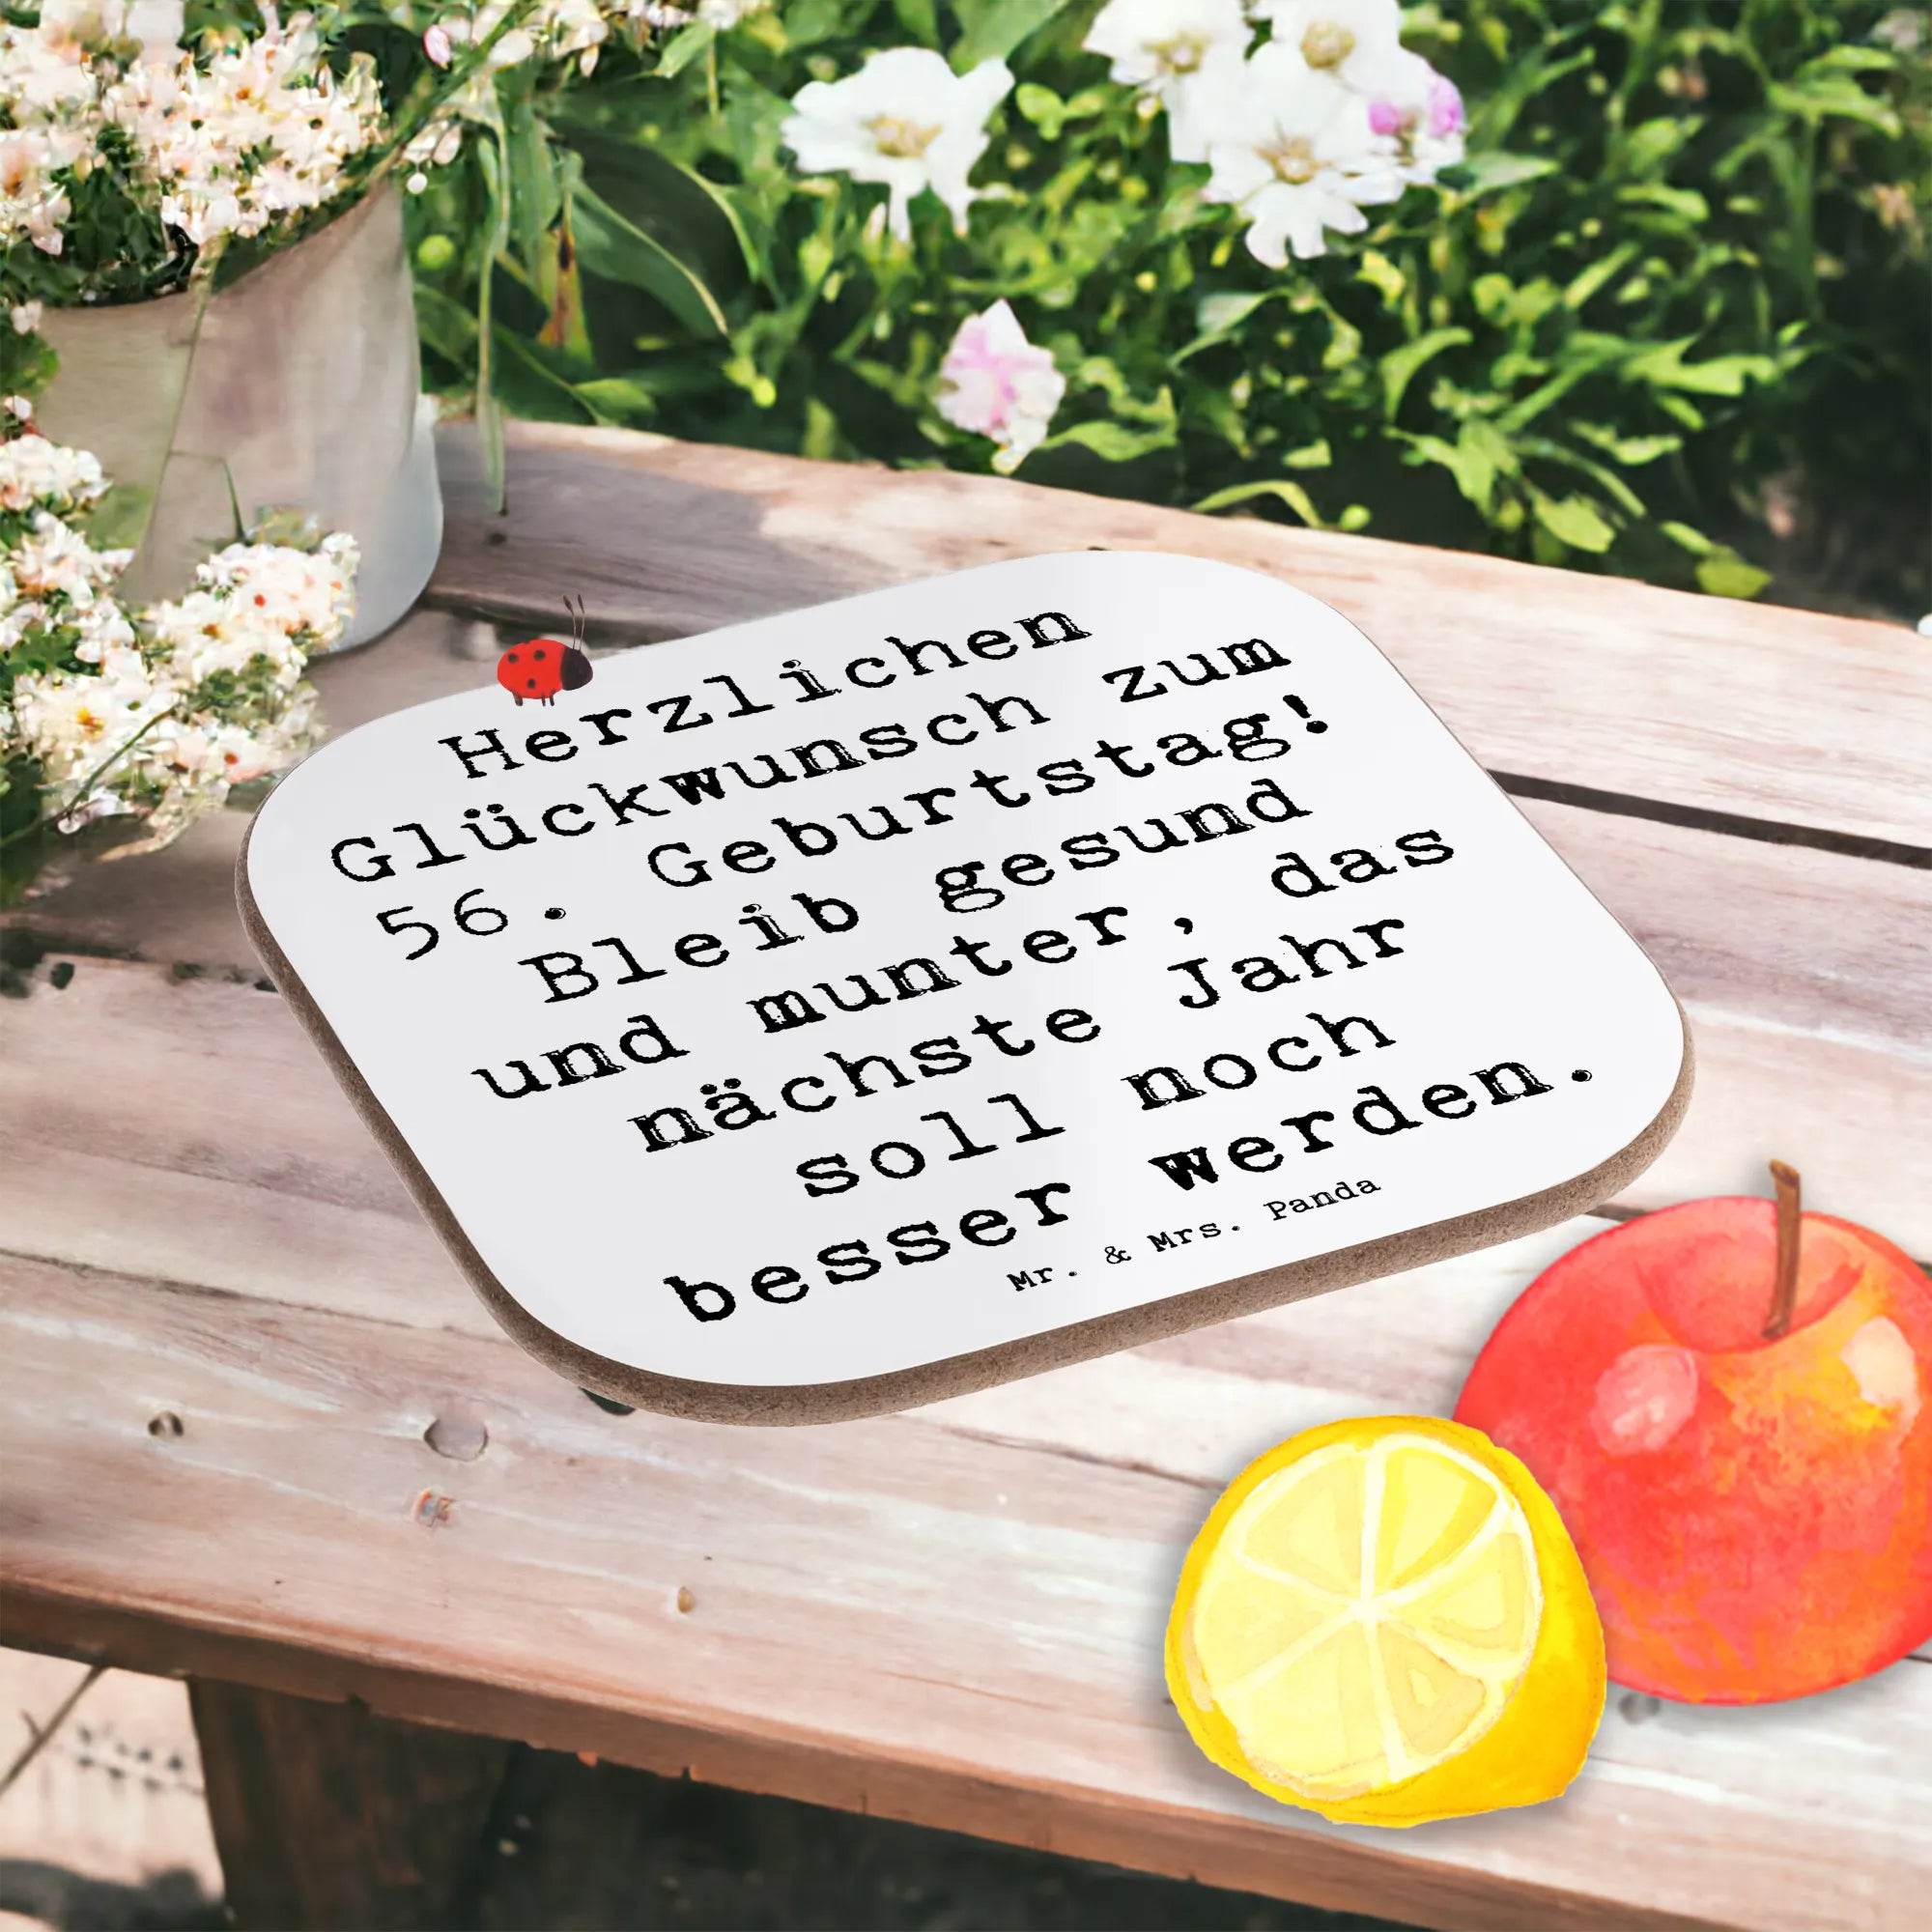 Herzlichen
Glückwunsch zum
56. Geburtstag!
Bleib gesund
und munter, das
nächste Jahr
soll noch
besser werden.
Mr. & Mrs. Panda